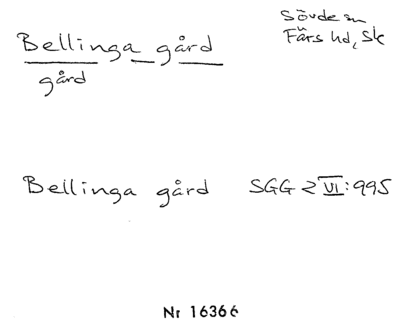 Bellinga gård
Sövde sn
Färs hd, Sk
gård
Bellinga gård SGG 2 VI:995
Nr 16366